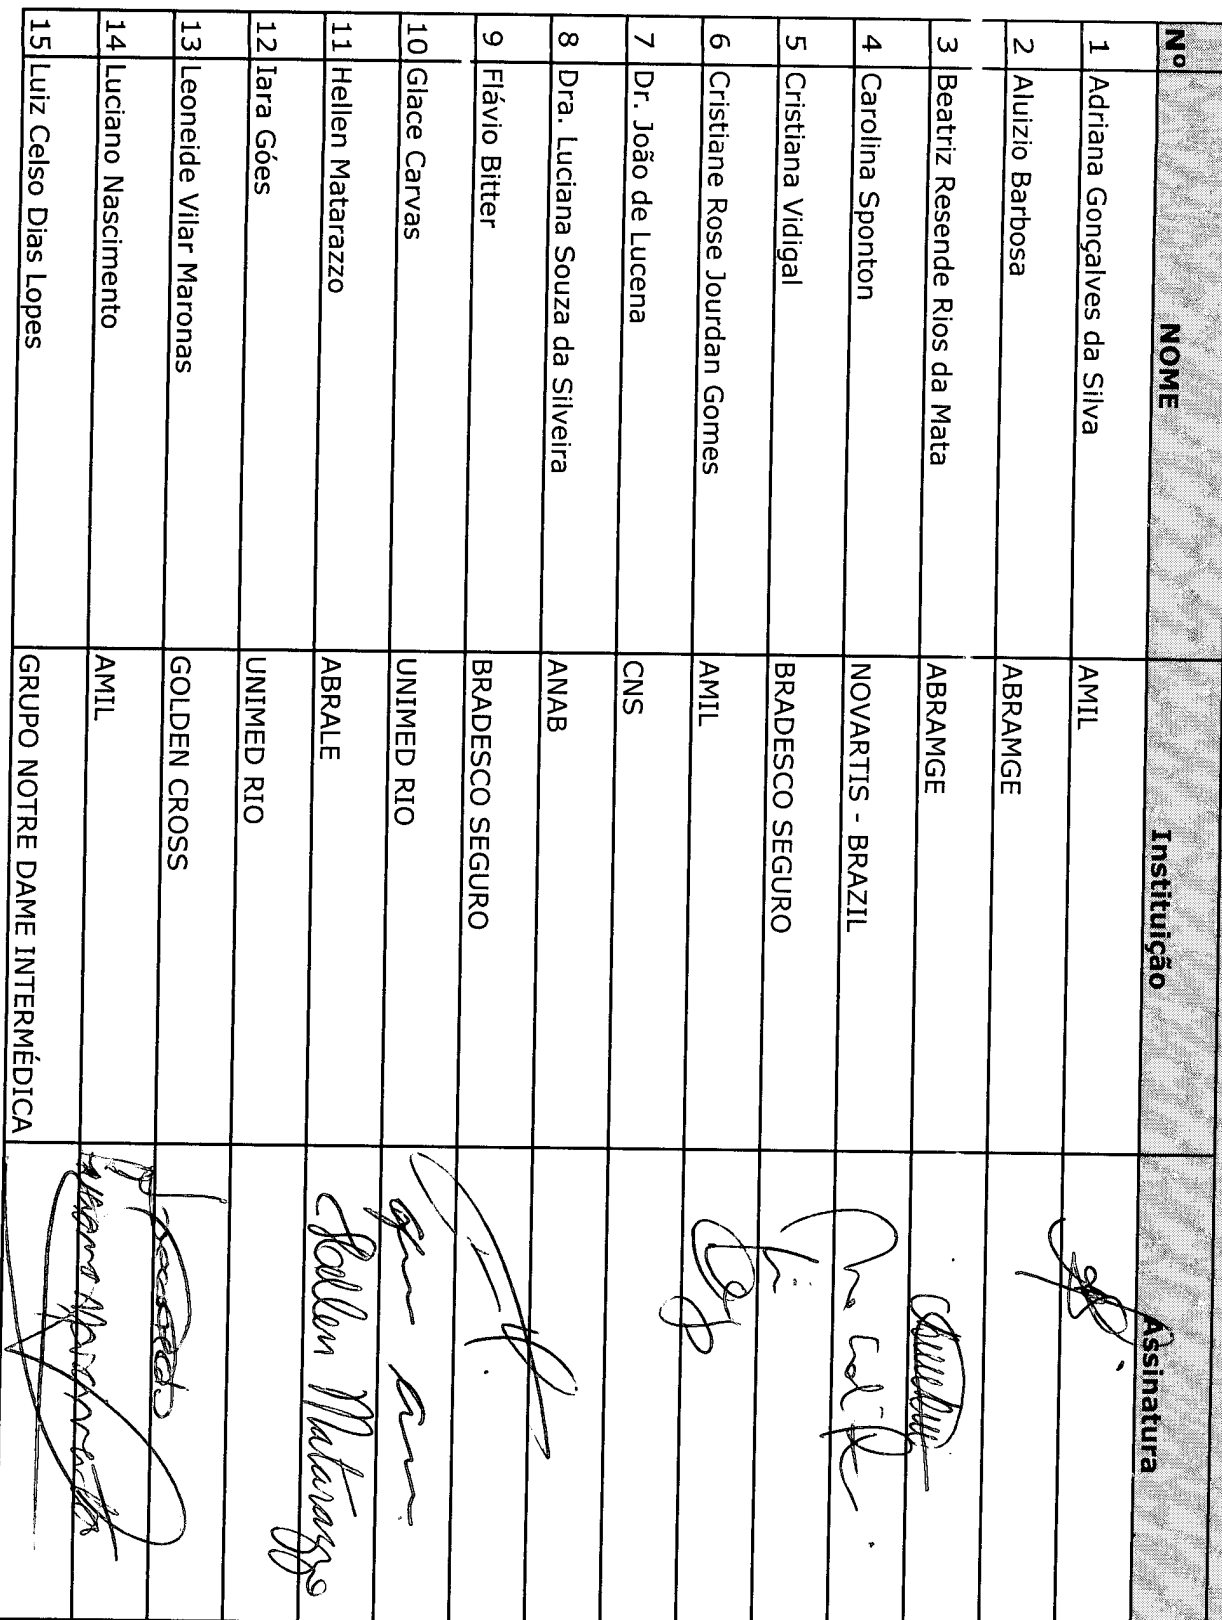 Nº NOME Instituição Assinatura
1 Adriana Gonçalves da Silva AMIL
2 Aluizio Barbosa ABRAMGE
3 Beatriz Resende Rios da Mata ABRAMGE
4 Carolina Sponton NOVARTIS - BRAZIL
5 Cristiana Vidigal BRADESCO SEGURO
6 Cristiane Rose Jourdan Gomes AMIL
7 Dr. João de Lucena CNS
8 Dra. Luciana Souza da Silveira ANAB
9 Flávio Bitter BRADESCO SEGURO
10 Glace Carvas UNIMED RIO
11 Hellen Matarazzo ABRALE Hellen Matarazzo
12 Iara Góes UNIMED RIO
13 Leoneide Vilar Maronas GOLDEN CROSS
14 Luciano Nascimento AMIL
15 Luiz Celso Dias Lopes GRUPO NOTRE DAME INTERMÉDICA